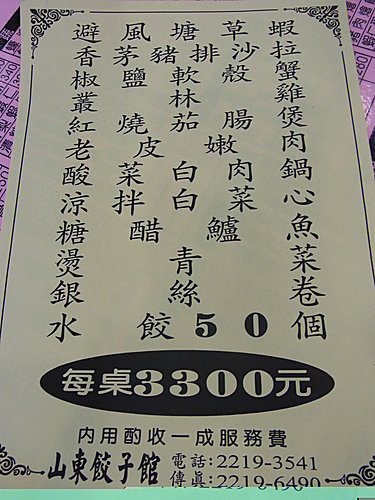 避風塘草蝦
香茅豬排沙拉
椒鹽軟殼蟹
叢林雞
紅燒茄腸煲
老皮嫩肉
酸菜白肉鍋
涼拌白菜心
糖醋鱸魚
燙青菜
銀絲卷
水餃50個
每桌3300元
內用酌收一成服務費
山東餃子館
電話:2219-3541
傳真:2219-6490